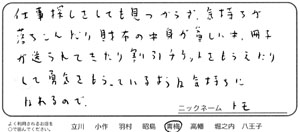 仕事探しをしても見つからず、気持ちが
落ちこんだり財布の中身が寂しい中、冊子
が送られてきたり割引チケットをもらえたり
して勇気をもらっているような気持ちに
なれるので。
ニックネーム トモ
よく利用されるお店を
○で囲んでください。 立川 小作 羽村 昭島 青梅 高幡 堀之内 八王子